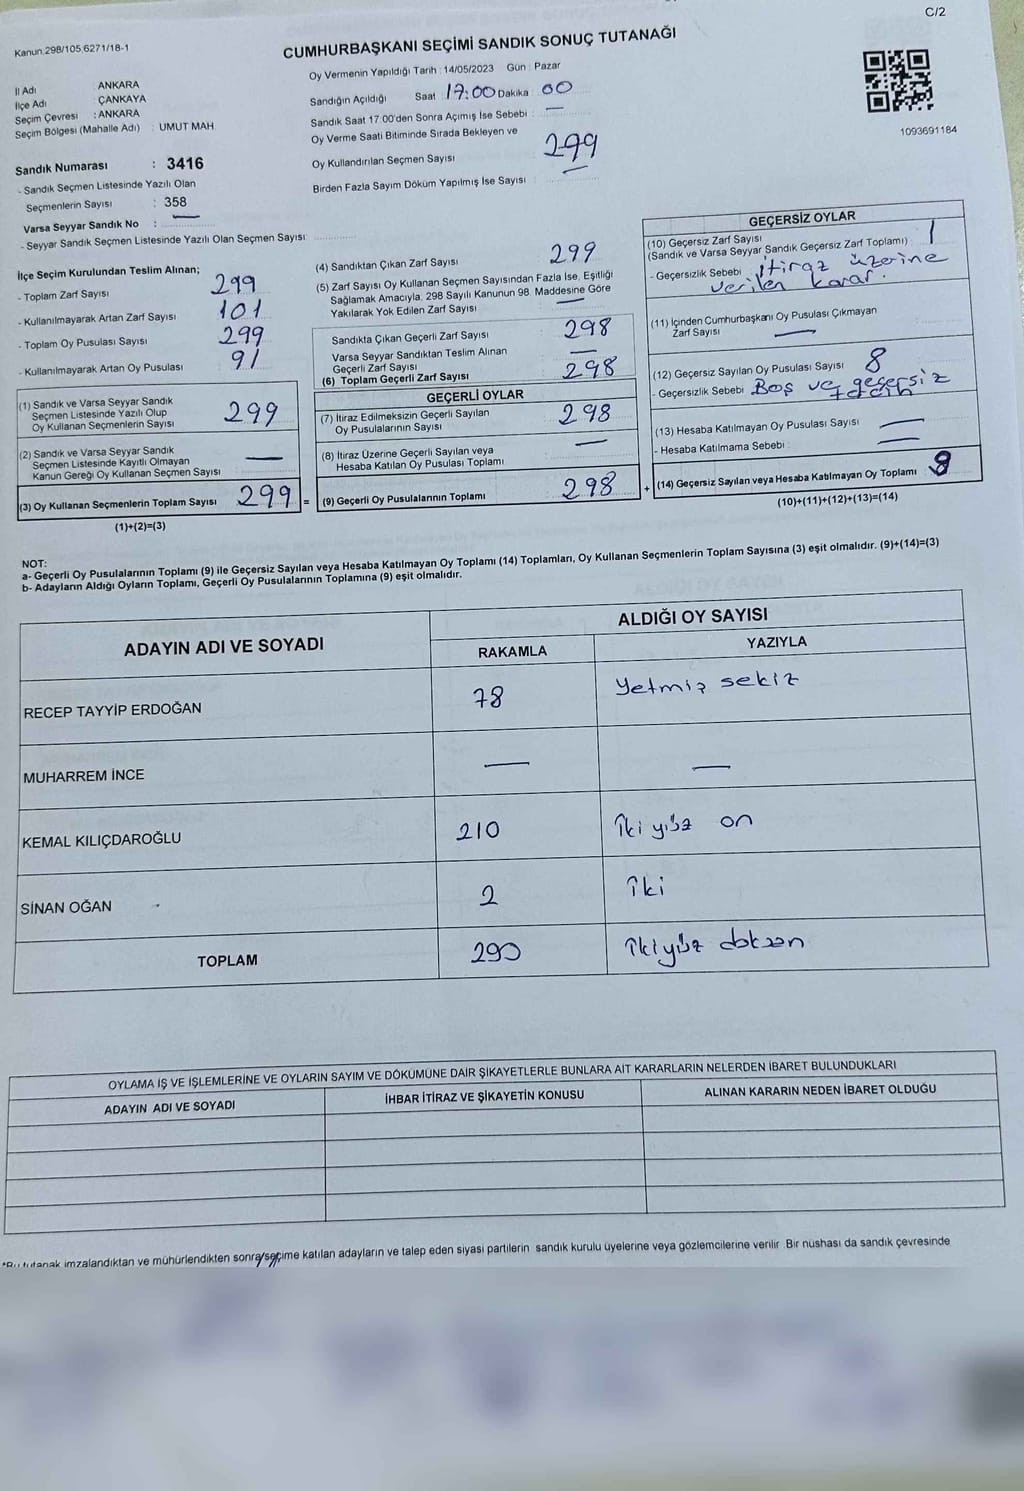 C/2
Kanun 298/105,6271/18-1
CUMHURBAŞKANI SEÇİMİ SANDIK SONUÇ TUTANAĞI
Oy Vermenin Yapıldığı Tarih : 14/05/2023 Gün : Pazar
İl Adı : ANKARA
İlçe Adı : ÇANKAYA
Seçim Çevresi : ANKARA
Seçim Bölgesi (Mahalle Adı) : UMUT MAH.
Sandığın Açıldığı Saat 17:00 Dakika 00
Sandık Saat 17.00'den Sonra Açımış İse Sebebi : —
Oy Verme Saati Bitiminde Sırada Bekleyen ve
Oy Kullandırılan Seçmen Sayısı 299
Birden Fazla Sayım Döküm Yapılmış İse Sayısı : —
1093691184
Sandık Numarası : 3416
- Sandık Seçmen Listesinde Yazılı Olan
Seçmenlerin Sayısı : 358
Varsa Seyyar Sandık No : —
- Seyyar Sandık Seçmen Listesinde Yazılı Olan Seçmen Sayısı:
İlçe Seçim Kurulundan Teslim Alınan;
- Toplam Zarf Sayısı 299
- Kullanılmayarak Artan Zarf Sayısı 101
- Toplam Oy Pusulası Sayısı 299
- Kullanılmayarak Artan Oy Pusulası 91
(1) Sandık ve Varsa Seyyar Sandık
Seçmen Listesinde Yazılı Olup
Oy Kullanan Seçmenlerin Sayısı 299
(2) Sandık ve Varsa Seyyar Sandık
Seçmen Listesinde Kayıtlı Olmayan
Kanun Gereği Oy Kullanan Seçmen Sayısı —
(3) Oy Kullanan Seçmenlerin Toplam Sayısı 299 =
(1)+(2)=(3)
(4) Sandıktan Çıkan Zarf Sayısı 299
(5) Zarf Sayısı Oy Kullanan Seçmen Sayısından Fazla İse, Eşitliği
Sağlamak Amacıyla, 298 Sayılı Kanunun 98. Maddesine Göre
Yakılarak Yok Edilen Zarf Sayısı —
Sandıkta Çıkan Geçerli Zarf Sayısı 298
Varsa Seyyar Sandıktan Teslim Alınan
Geçerli Zarf Sayısı —
(6) Toplam Geçerli Zarf Sayısı 298
GEÇERLİ OYLAR
(7) İtiraz Edilmeksizin Geçerli Sayılan
Oy Pusulalarının Sayısı 298
(8) İtiraz Üzerine Geçerli Sayılan veya
Hesaba Katılan Oy Pusulası Toplamı —
(9) Geçerli Oy Pusulalarının Toplamı 298 +
GEÇERSİZ OYLAR
(10) Geçersiz Zarf Sayısı
(Sandık ve Varsa Seyyar Sandık Geçersiz Zarf Toplamı) : 1
- Geçersizlik Sebebi İtiraz üzerine
verilen karar.
(11) İçinden Cumhurbaşkanı Oy Pusulası Çıkmayan
Zarf Sayısı —
(12) Geçersiz Sayılan Oy Pusulası Sayısı 8
- Geçersizlik Sebebi Boş ve geçersiz
tercih
(13) Hesaba Katılmayan Oy Pusulası Sayısı —
- Hesaba Katılmama Sebebi : —
(14) Geçersiz Sayılan veya Hesaba Katılmayan Oy Toplamı 9
(10)+(11)+(12)+(13)=(14)
NOT:
a- Geçerli Oy Pusulalarının Toplamı (9) ile Geçersiz Sayılan veya Hesaba Katılmayan Oy Toplamı (14) Toplamları, Oy Kullanan Seçmenlerin Toplam Sayısına (3) eşit olmalıdır. (9)+(14)=(3)
b- Adayların Aldığı Oyların Toplamı, Geçerli Oy Pusulalarının Toplamına (9) eşit olmalıdır.
ADAYIN ADI VE SOYADI ALDIĞI OY SAYISI
RAKAMLA YAZIYLA
RECEP TAYYİP ERDOĞAN 78 Yetmiş sekiz
MUHARREM İNCE — —
KEMAL KILIÇDAROĞLU 210 İki yüz on
SİNAN OĞAN 2 İki
TOPLAM 290 İkiyüz doksan
OYLAMA İŞ VE İŞLEMLERİNE VE OYLARIN SAYIM VE DÖKÜMÜNE DAİR ŞİKAYETLERLE BUNLARA AİT KARARLARIN NELERDEN İBARET BULUNDUKLARI
ADAYIN ADI VE SOYADI İHBAR İTİRAZ VE ŞİKAYETİN KONUSU ALINAN KARARIN NEDEN İBARET OLDUĞU
*Bu tutanak imzalandıktan ve mühürlendikten sonra seçime katılan adayların ve talep eden siyasi partilerin sandık kurulu üyelerine veya gözlemcilerine verilir. Bir nüshası da sandık çevresinde